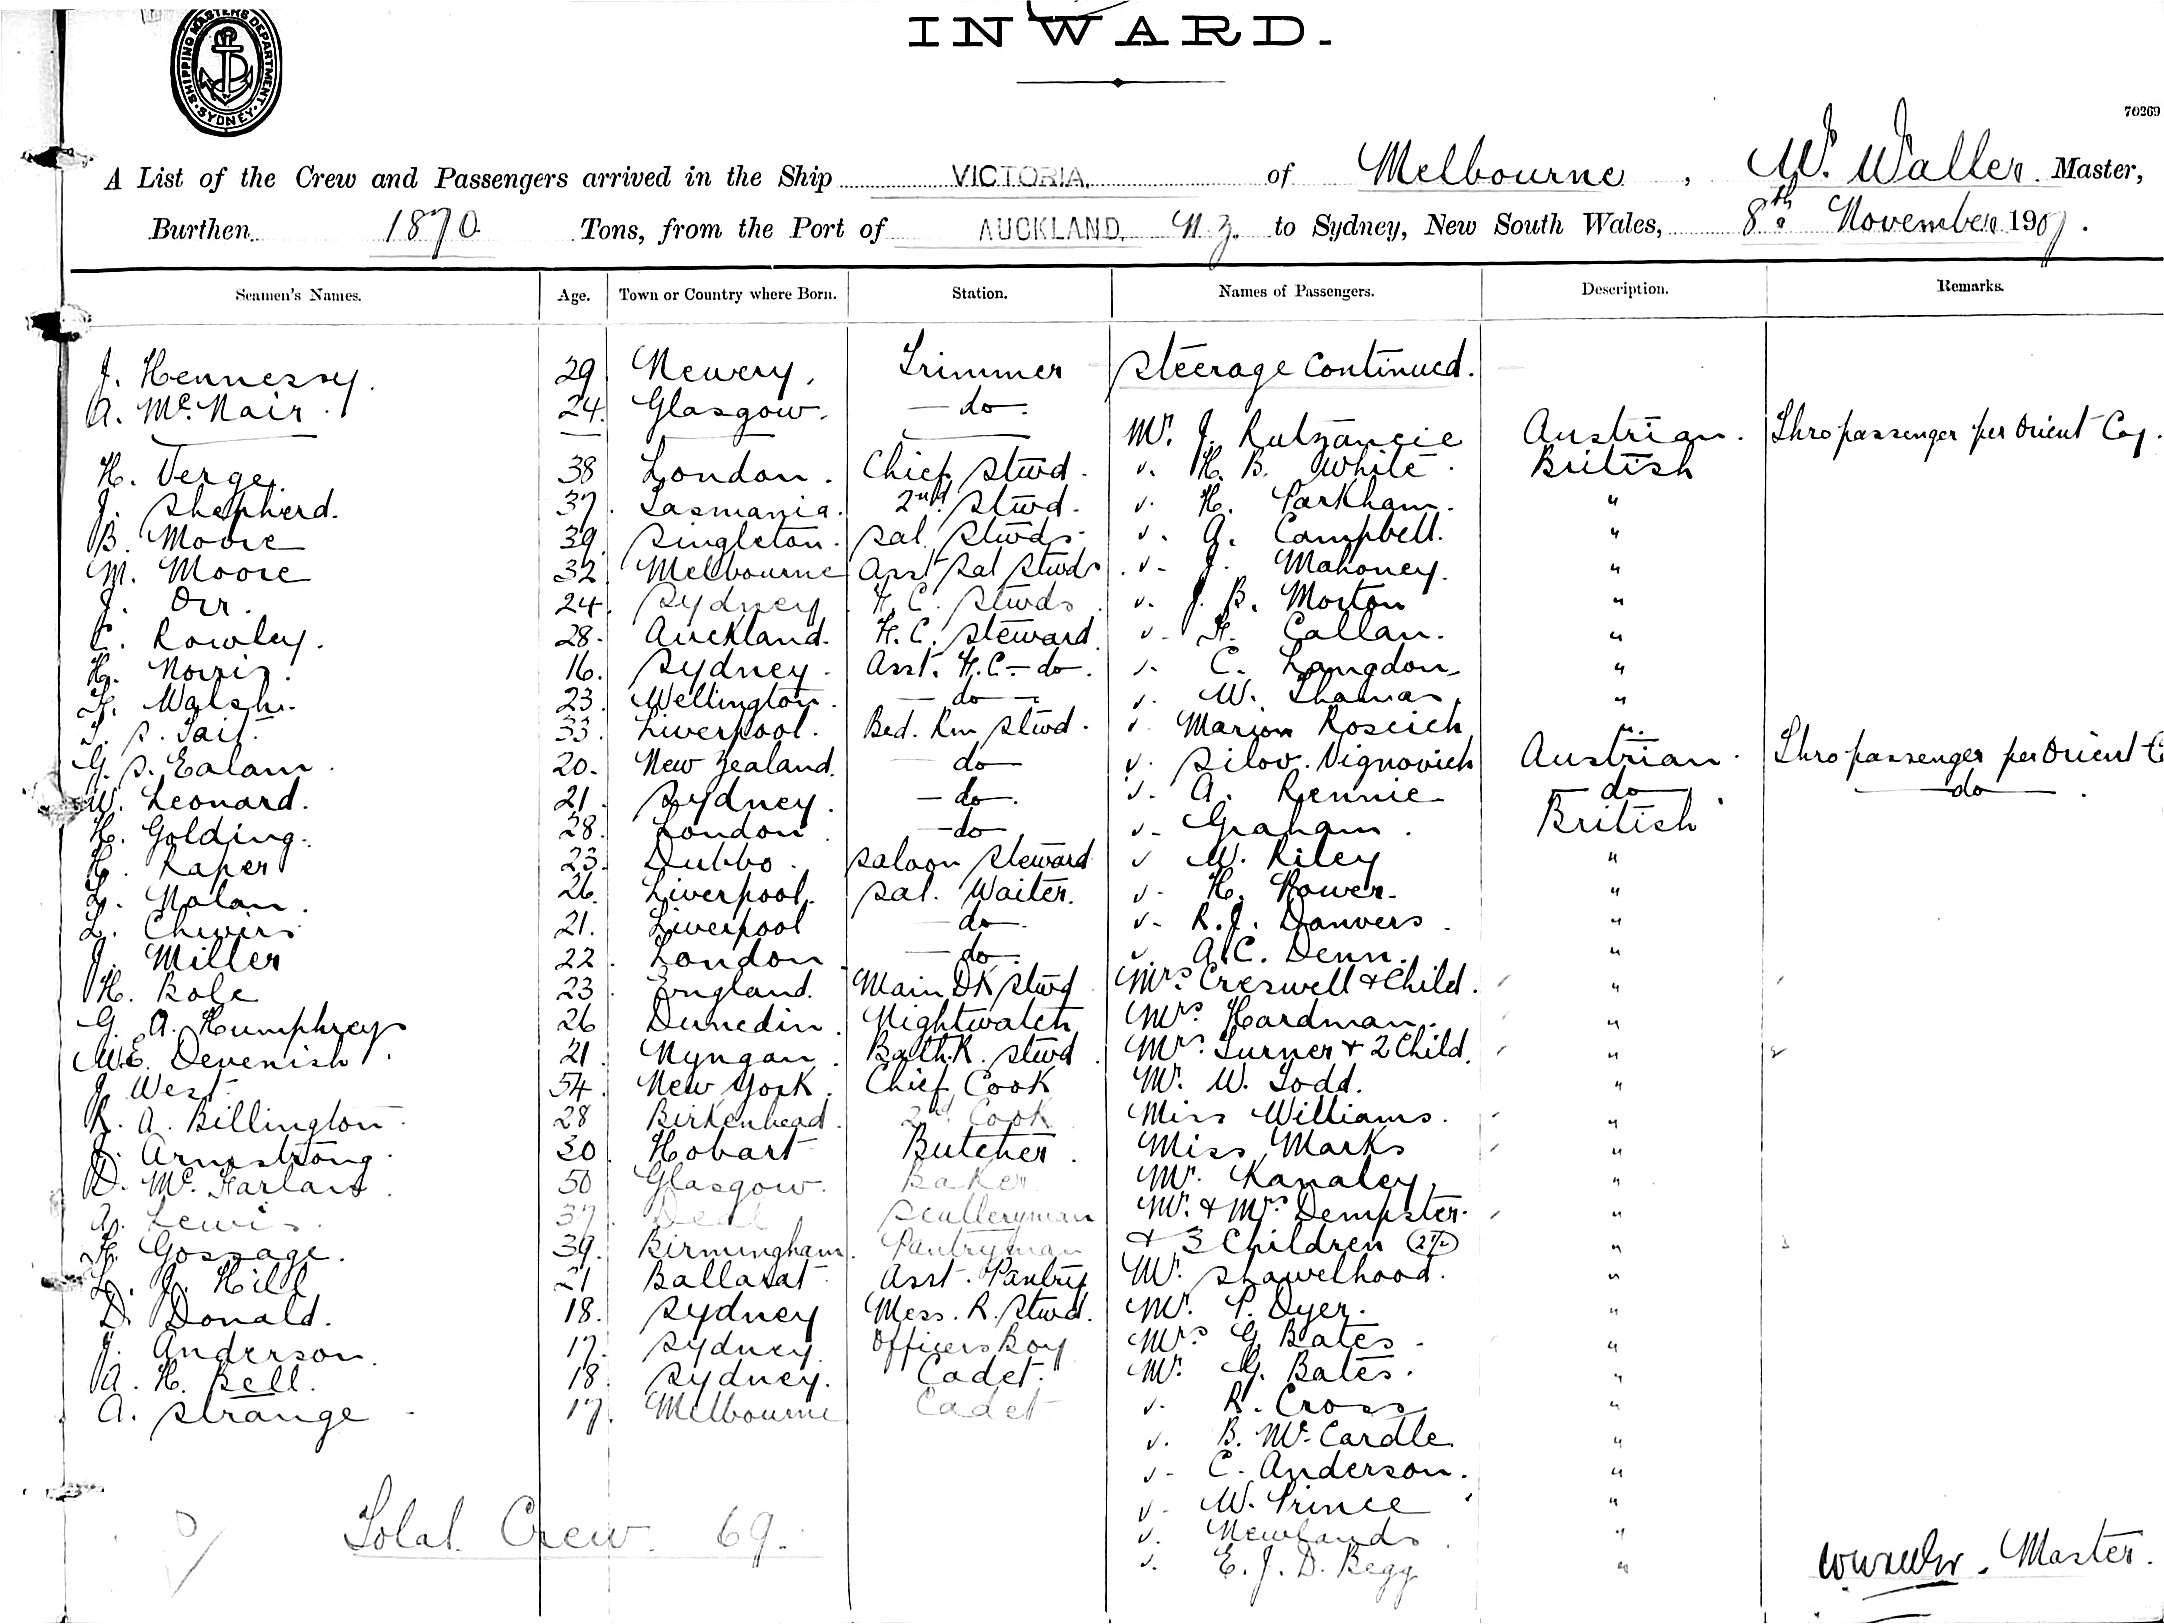 SHIPPING MASTERS DEPARTMENT SYDNEY
INWARD.
70269
A List of the Crew and Passengers arrived in the Ship VICTORIA. of Melbourne, W. Waller. Master,
Burthen 1870 Tons, from the Port of AUCKLAND, N.Z. to Sydney, New South Wales, 8th November 1907.
Seamen's Names. Age. Town or Country where Born. Station. Names of Passengers. Description. Remarks.
J. Hennessy. 29 Newery. Trimmer Steerage Continued.
A. McNair. 24 Glasgow. do.
Mr. J. Rutzancie Austrian. Thro passenger per Orient Coy.
H. Verge. 38 London. Chief Stwd. " H. B. White. British
J. Shepherd. 37. Tasmania. 2nd Stwd. " H. Parkham. "
B. Moore 39. Singleton. Sal. Stwds. " A. Campbell. "
M. Moore 32 Melbourne Asst Sal Stwds " J. Mahoney. "
J. Orr. 24. Sydney F.C. Stwds " J. B. Morton "
C. Rowley. 28. Auckland. F.C. Steward " F. Callan. "
H. Norris. 16. Sydney. Asst. F.C. do. " C. Langdon. "
F. Walsh. 23. Wellington. do " W. Thomas "
T. S. Tait. 33. Liverpool. Bed. Rm Stwd. " Marion Roscich "
G. S. Ealam. 20. New Zealand. do " Silov. Vignovich Austrian. Thro passenger per Orient C
W. Leonard. 21. Sydney. do. " A. Rennie do do
H. Golding. 28. London do " Graham. British
H. Raper 23. Dubbo. Saloon Steward " W. Riley "
L. Nolan. 26. Liverpool. Sal. Waiter. " H. Power. "
L. Chivers 21. Liverpool do " R.J. Danvers. "
J. Miller 22. London do. " A.C. Denn. "
H. Bole 23. England. Main DK Stwd Mrs Creswell & Child. "
G. A. Humphreys 26 Dunedin. Nightwatch Mrs. Hardman. "
W.E. Devenish. 21. Nyngan. Bath.R. Stwd Mrs. Turner & 2 Child. "
J. West. 54. New York. Chief Cook Mr. W. Todd. "
R. A. Billington 28 Birkenhead. 2nd Cook Miss Williams. "
J. Armstrong. 30 Hobart Butcher. Miss Marks "
D. McFarlane 50 Glasgow. Baker Mr. Kanaley, "
A. Lewis. 37. Deal Sculleryman Mr. & Mrs Dempster. "
F. Gossage. 39. Birmingham. Pantryman & 3 Children (2½) "
L. J. Hill 21 Ballarat. Asst. Pantry Mr. Shawelhood. "
D. Donald. 18. Sydney Mess. R. Stwd. Mr. P. Dyer. "
J. Anderson. 17. Sydney. Officers Boy Mrs G. Bates. "
A. H. Bell. 18. Sydney. Cadet. Mr. G. Bates. "
A. Strange 17. Melbourne Cadet " R. Cross "
" B. McCardle. "
" C. Anderson. "
" W. Prince "
Total Crew. 69. " Newlands "
" E. J. D. Begg "
W Waller. Master.